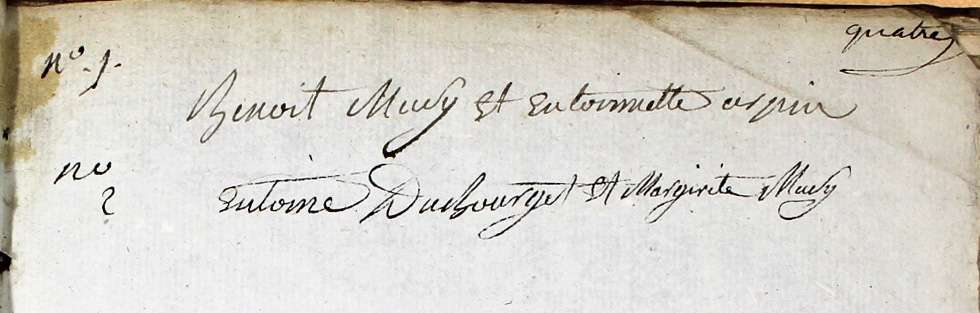 quatre
no. 1.
Benoit Mury Et Entoinnette arpin
no
2 Entoine Dubourget Et Margirite Mury